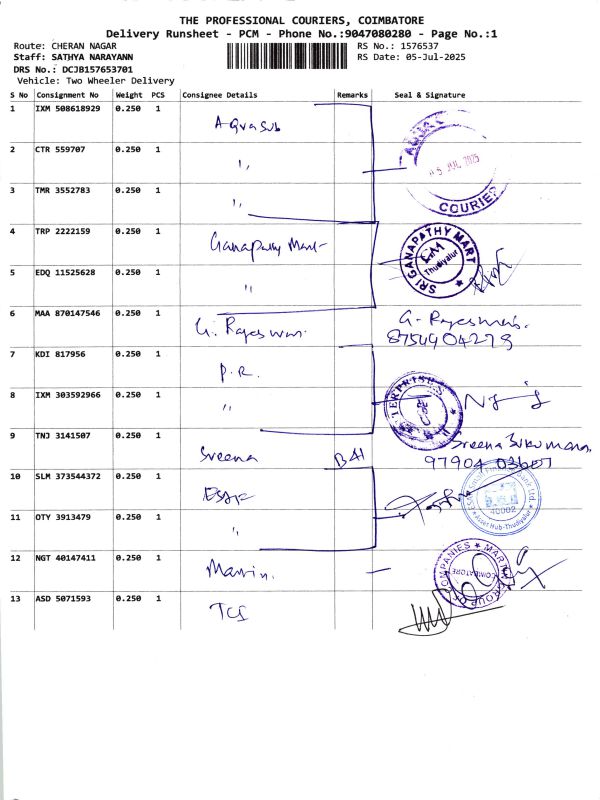 THE PROFESSIONAL COURIERS, COIMBATORE
Delivery Runsheet - PCM - Phone No.:9047080280 - Page No.:1
Route: CHERAN NAGAR
RS No.: 1576537
Staff: SATHYA NARAYANN
RS Date: 05-Jul-2025
DRS No.: DCJB157653701
Vehicle: Two Wheeler Delivery
S No Consignment No Weight PCS Consignee Details Remarks Seal & Signature
1 IXM 508618929 0.250 1
2 CTR 559707 0.250 1 " 05 JUL 2025
3 TMR 3552783 0.250 1 " COURIER
4 TRP 2222159 0.250 1 Ganapathy Mart SRI GANAPATHY MART Thudiyalur
5 EDQ 11525628 0.250 1 "
6 MAA 870147546 0.250 1 G. Rajeswari G. Rajeswari.
8754904278
7 KDI 817956 0.250 1 P.R.
8 IXM 303592966 0.250 1 "
9 TNJ 3141507 0.250 1 Sreena Sreena Sukumaran,
97904 03607
10 SLM 373544372 0.250 1 ESAF
11 OTY 3913479 0.250 1 " 40002 Asset Hub-Thudiyalur
12 NGT 40147411 0.250 1 Martin. MARTIN GROUP OF COMPANIES COIMBATORE
13 ASD 5071593 0.250 1 TCS